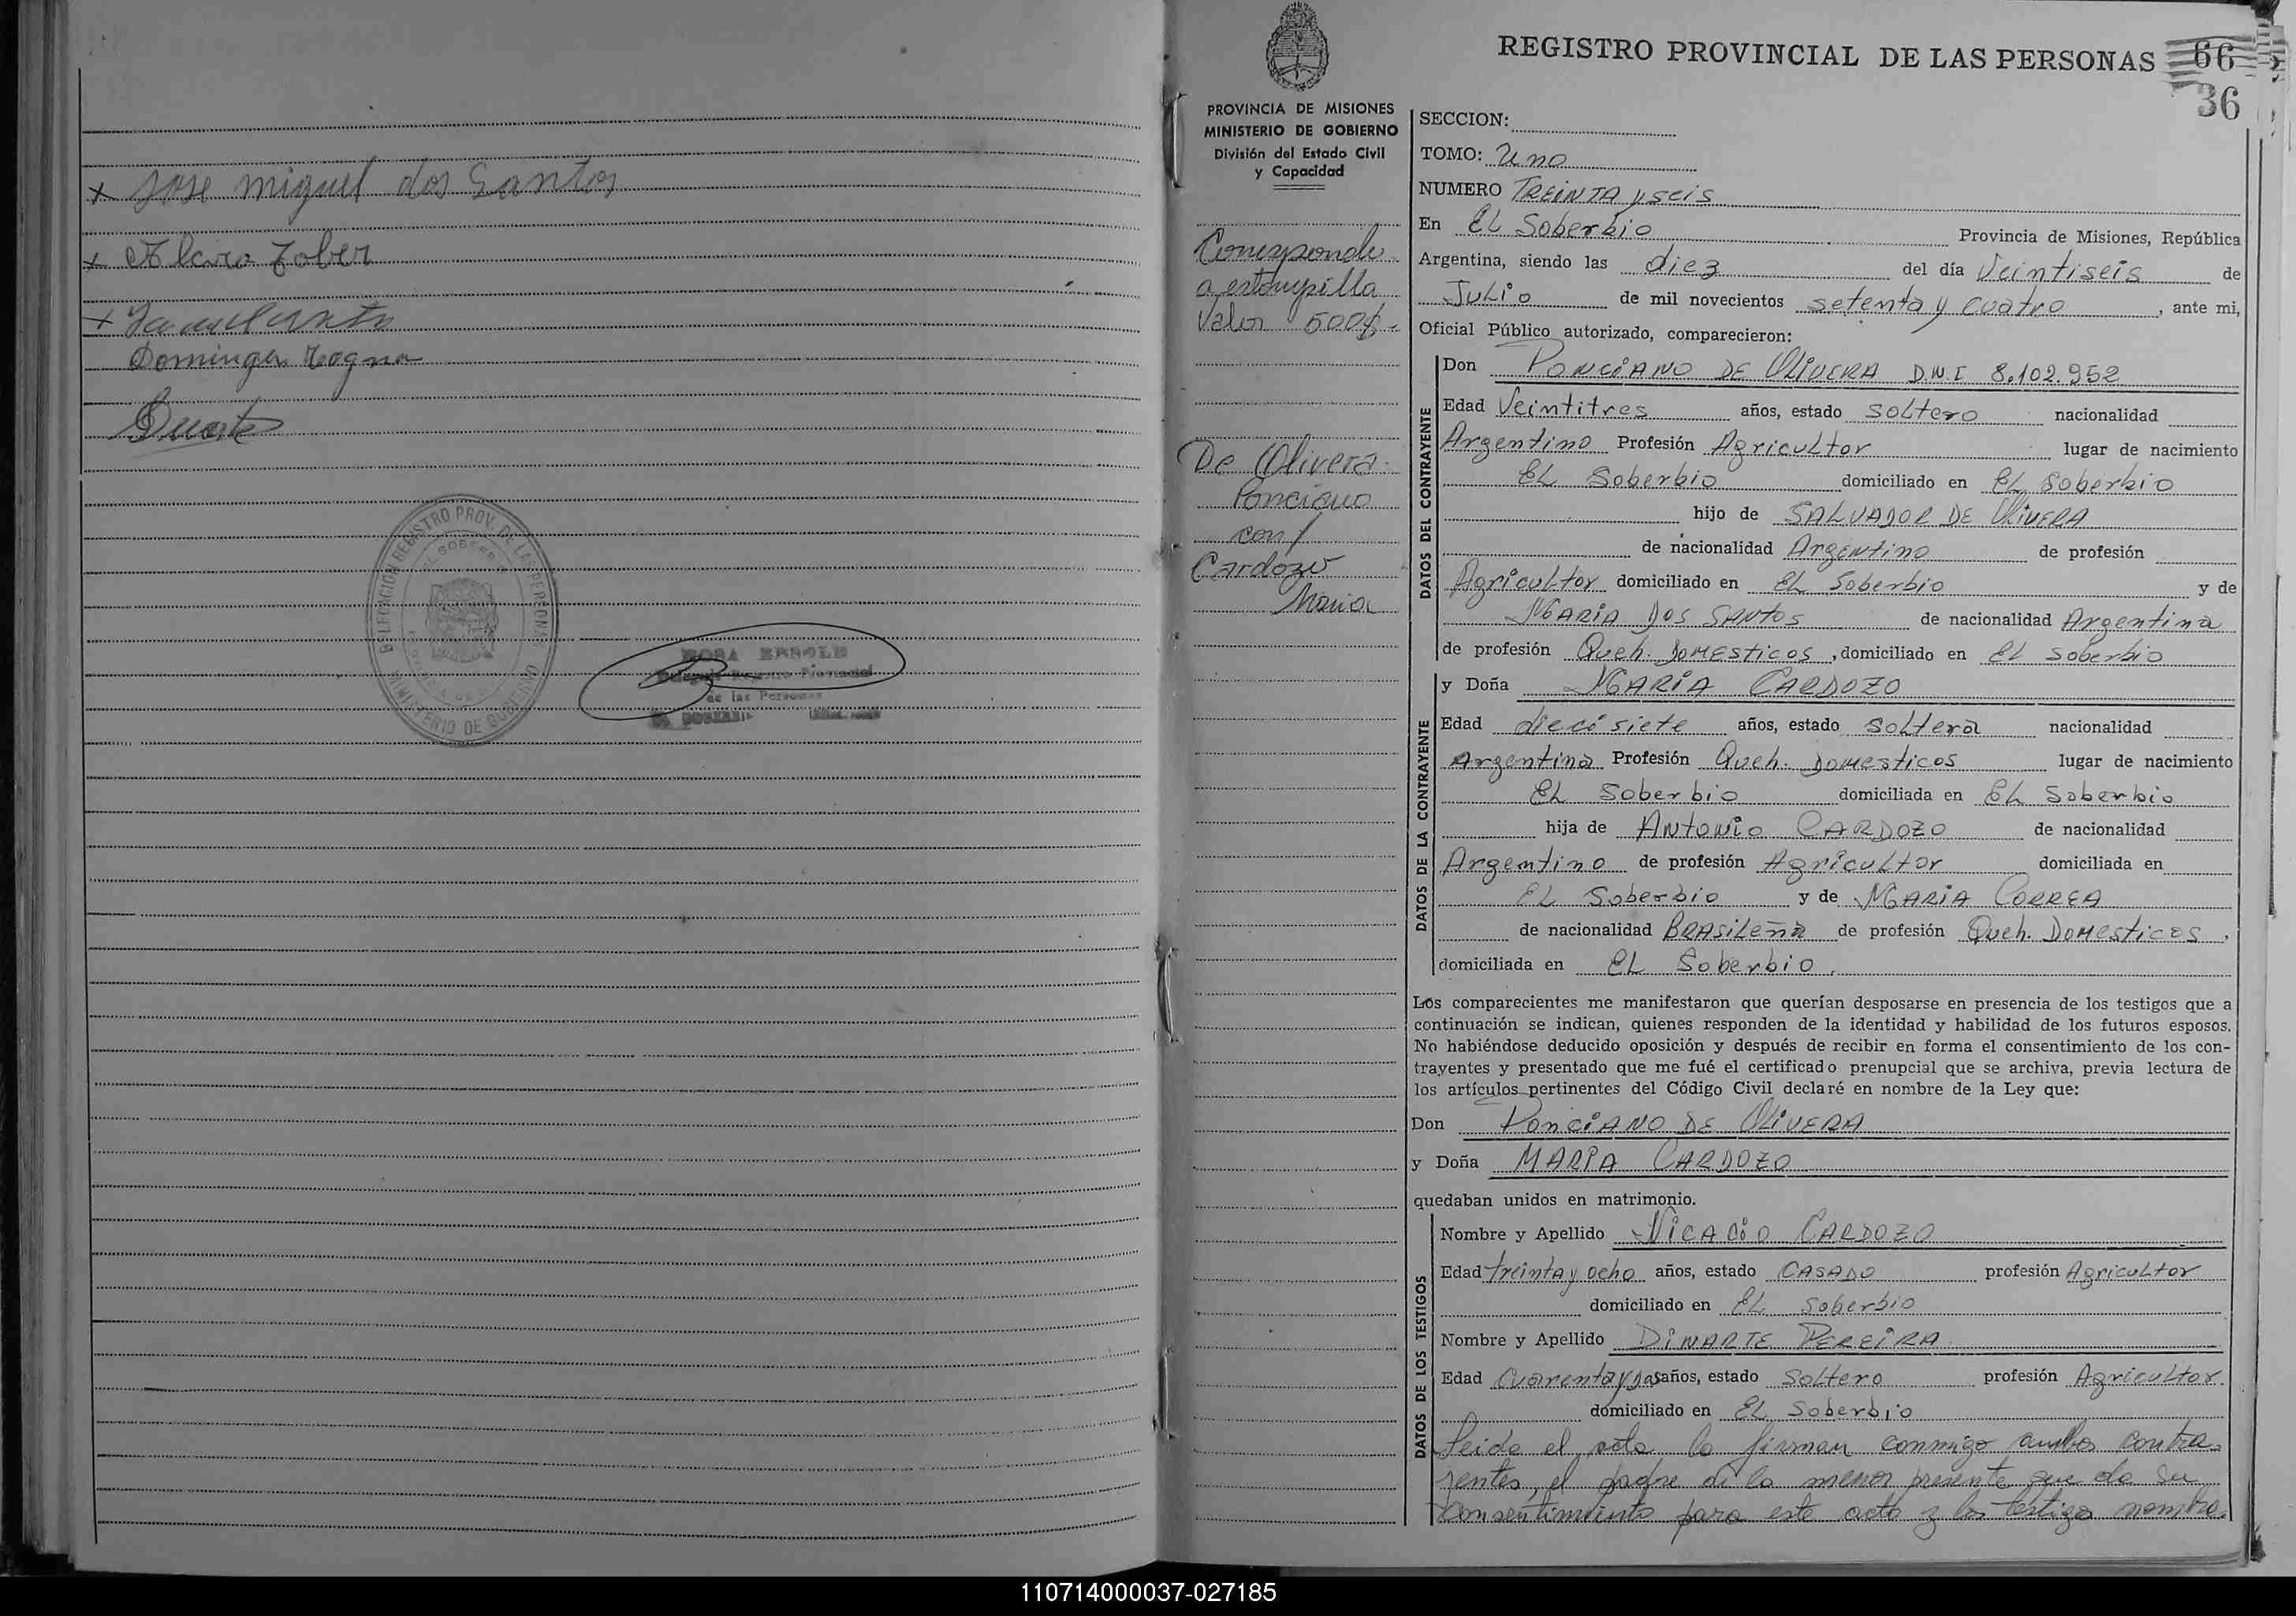 x Jose miguel dos Santos
x
x
Duarte
DELEGACION REGISTRO PROV. DE LAS PERSONAS
MINISTERIO DE GOBIERNO
de las Personas
REGISTRO PROVINCIAL DE LAS PERSONAS 66
36
PROVINCIA DE MISIONES
MINISTERIO DE GOBIERNO
División del Estado Civil
y Capacidad
Corresponde
a estampilla
Valor 500$
De Olivera
Ponciano
con/
Cardozo
Maria
SECCION:
TOMO: Uno
NUMERO TREINTA y SEIS
En EL Soberbio Provincia de Misiones, República
Argentina, siendo las diez del día Veintiseis de
Julio de mil novecientos setenta y cuatro, ante mi,
Oficial Público autorizado, comparecieron:
DATOS DEL CONTRAYENTE
Don PONCIANO DE OLIVERA D.N.I 8.102.952
Edad Veintitres años, estado soltero nacionalidad
Argentino Profesión Agricultor lugar de nacimiento
EL Soberbio domiciliado en EL Soberbio
hijo de SALVADOR DE OLIVERA
de nacionalidad Argentino de profesión
Agricultor domiciliado en EL Soberbio y de
MARIA DOS SANTOS de nacionalidad Argentina
de profesión Queh. DOMESTICOS, domiciliado en El soberbio
DATOS DE LA CONTRAYENTE
y Doña MARIA CARDOZO
Edad diecisiete años, estado Soltera nacionalidad
Argentina Profesión Queh. Domesticos lugar de nacimiento
EL Soberbio domiciliada en EL Soberbio
hija de ANTONIO CARDOZO de nacionalidad
Argentino de profesión Agricultor domiciliada en
EL Soberbio y de MARIA CORREA
de nacionalidad BRASILEÑA de profesión Queh. DOMESTICOS,
domiciliada en EL Soberbio.
Los comparecientes me manifestaron que querían desposarse en presencia de los testigos que a
continuación se indican, quienes responden de la identidad y habilidad de los futuros esposos.
No habiéndose deducido oposición y después de recibir en forma el consentimiento de los con-
trayentes y presentado que me fué el certificado prenupcial que se archiva, previa lectura de
los artículos pertinentes del Código Civil declaré en nombre de la Ley que:
Don PONCIANO DE OLIVERA
y Doña MARIA CARDOZO
quedaban unidos en matrimonio.
DATOS DE LOS TESTIGOS
Nombre y Apellido CARDOZO
Edad treinta y ocho años, estado CASADO profesión Agricultor
domiciliado en EL Soberbio
Nombre y Apellido DINARTE PEREIRA
Edad Cuarenta y dos años, estado Soltero profesión Agricultor
domiciliado en EL Soberbio
Leida el acta la firman conmigo ambos contra-
yentes, el padre de la menor presente que da su
consentimiento para este acto y los testigos nombra-
110714000037-027185